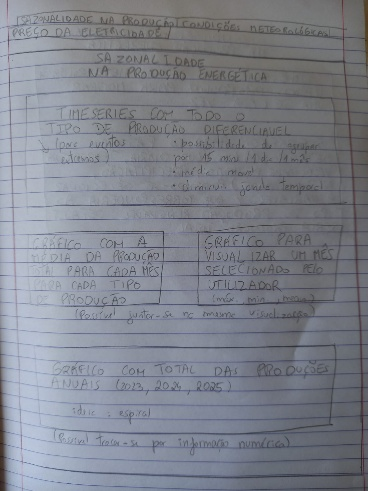 SAZONALIDADE NA PRODUÇÃO | CONDIÇÕES METEOROLÓGICAS
PREÇO DA ELETRICIDADE
SAZONALIDADE
NA PRODUÇÃO ENERGÉTICA
TIMESERIES COM TODO O
TIPO DE PRODUÇÃO DIFERENCIAVEL
(para eventos • possibilidade de agrupar
externos) por 15 min / 1d / 1m
• média movel
• diminuir janela temporal
GRÁFICO COM A
MÉDIA DA PRODUÇÃO
TOTAL PARA CADA MÊS
PARA CADA TIPO
DE PRODUÇÃO
GRÁFICO PARA
VISUALIZAR UM MÊS
SELECIONADO PELO
UTILIZADOR
(máx, min,
(Possível juntar-se no mesmo visual
GRÁFICO COM TOTAL DAS PRODUÇÕES
ANUAIS (2023, 2024, 2025)
ideia: espiral
(Possível trocar-se por informação numérica)